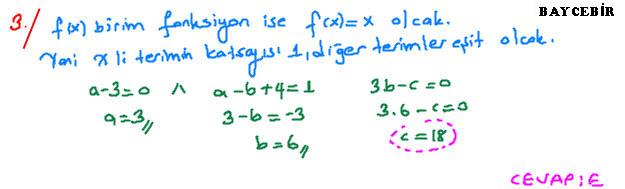 BAYCEBİR
3./ f(x) birim fonksiyon ise f(x)=x olcak.
Yani x li terimin katsayısı 1, diğer terimler eşit olcak.
a-3=0 ∧ a-b+4=1 3b-c=0
a=3// 3-b=-3 3.6-c=0
b=6// c=18
CEVAP:E